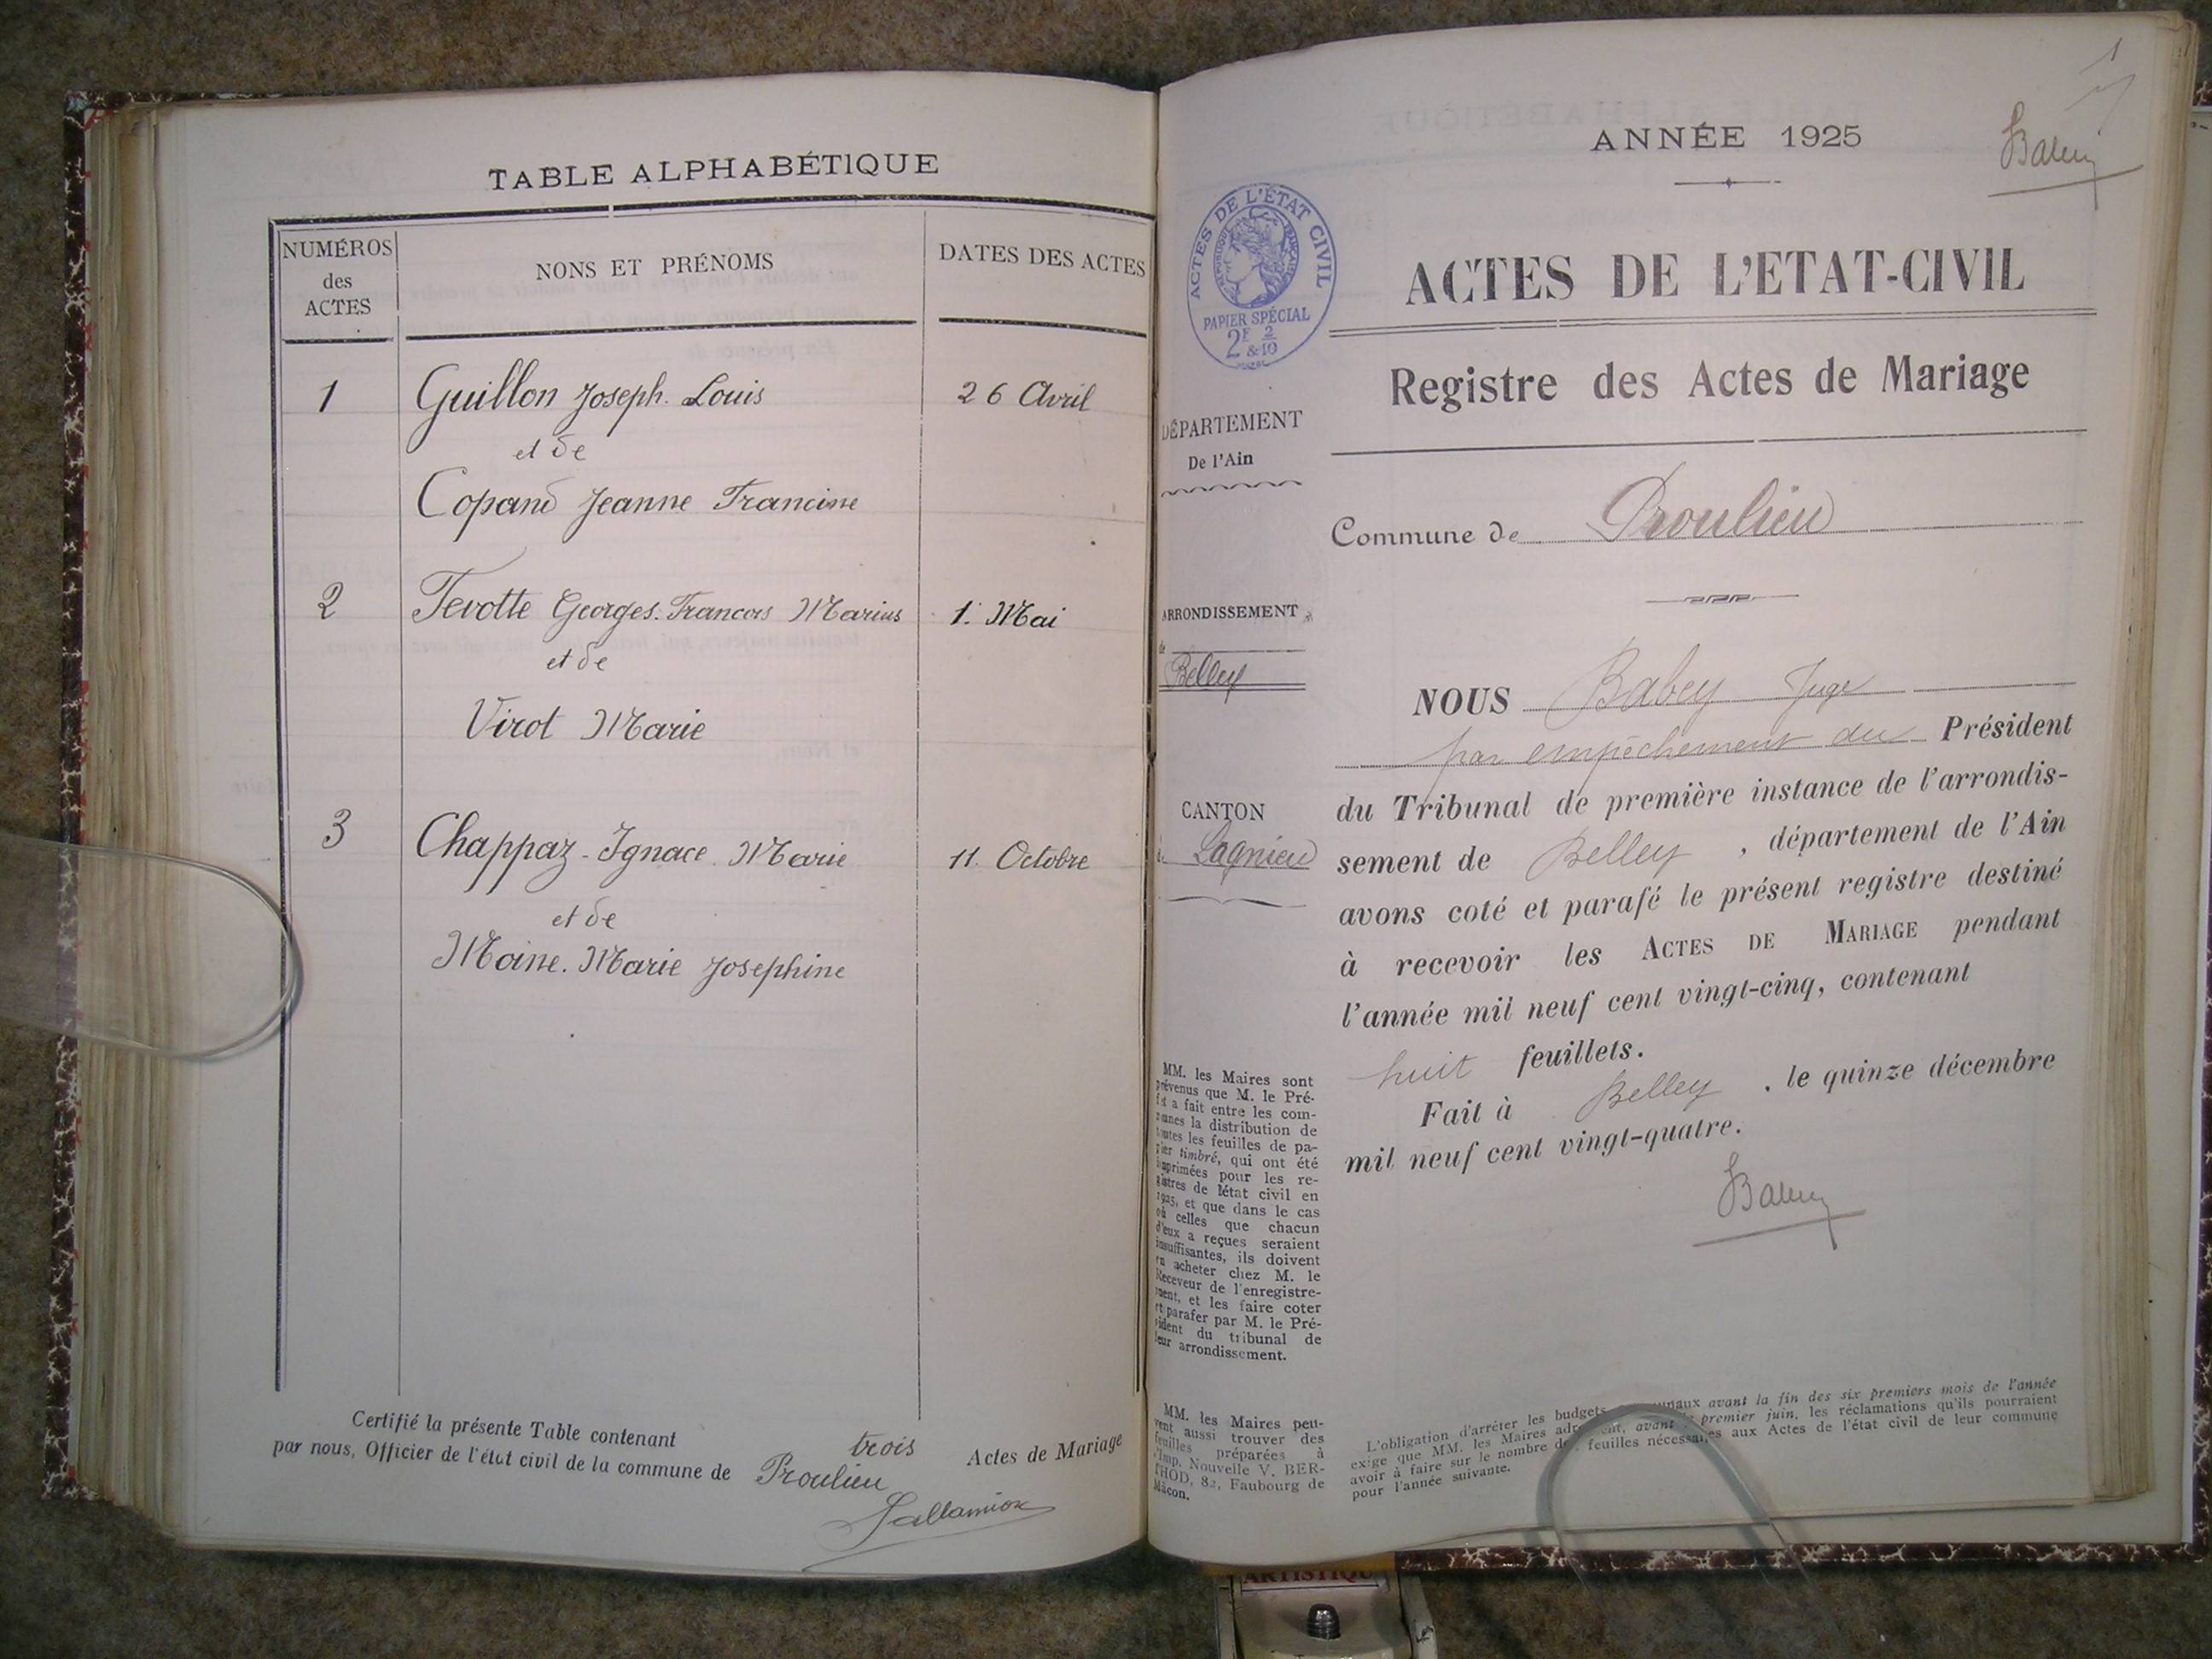 TABLE ALPHABÉTIQUE
NUMÉROS
des
ACTES
NONS ET PRÉNOMS
DATES DES ACTES
1 Guillon Joseph. Louis 26 Avril
et de
Copand Jeanne Francine
2 Tevotte Georges. Francois Marius 1. Mai
et de
Virot Marie
3 Chappaz - Ignace Marie 11. Octobre
et de
Moine. Marie Josephine
Certifié la présente Table contenant trois Actes de Mariage
par nous, Officier de l'état civil de la commune de Proulieu
1
Babey
ANNÉE 1925
ACTES DE L'ÉTAT CIVIL
RÉPUBLIQUE FRANÇAISE
PAPIER SPÉCIAL
2F & 2/10
ACTES DE L'ETAT-CIVIL
Registre des Actes de Mariage
DÉPARTEMENT
De l'Ain
Commune de Proulieu
ARRONDISSEMENT
de
Belley
CANTON
de Lagnieu
NOUS Babey Juge
par empêchement du Président
du Tribunal de première instance de l'arrondis-
sement de Belley, département de l'Ain
avons coté et parafé le présent registre destiné
à recevoir les ACTES DE MARIAGE pendant
l'année mil neuf cent vingt-cinq, contenant
huit feuillets.
Fait à Belley, le quinze décembre
mil neuf cent vingt-quatre.
Babey
MM. les Maires sont
prévenus que M. le Pré-
fet a fait entre les com-
munes la distribution de
toutes les feuilles de pa-
pier timbré, qui ont été
imprimées pour les re-
gistres de l'état civil en
1925, et que dans le cas
où celles que chacun
d'eux a reçues seraient
insuffisantes, ils doivent
en acheter chez M. le
Receveur de l'enregistre-
ment, et les faire coter
et parafer par M. le Pré-
sident du tribunal de
leur arrondissement.
MM. les Maires peu-
vent aussi trouver des
feuilles préparées à
l'Imp. Nouvelle V. BER-
THOD, 82, Faubourg de
Mâcon.
L'obligation d'arrêter les budgets communaux avant la fin des six premiers mois de l'année
exige que MM. les Maires adressent, avant le premier juin, les réclamations qu'ils pourraient
avoir à faire sur le nombre des feuilles nécessaires aux Actes de l'état civil de leur commune
pour l'année suivante.
ARTISTIQU